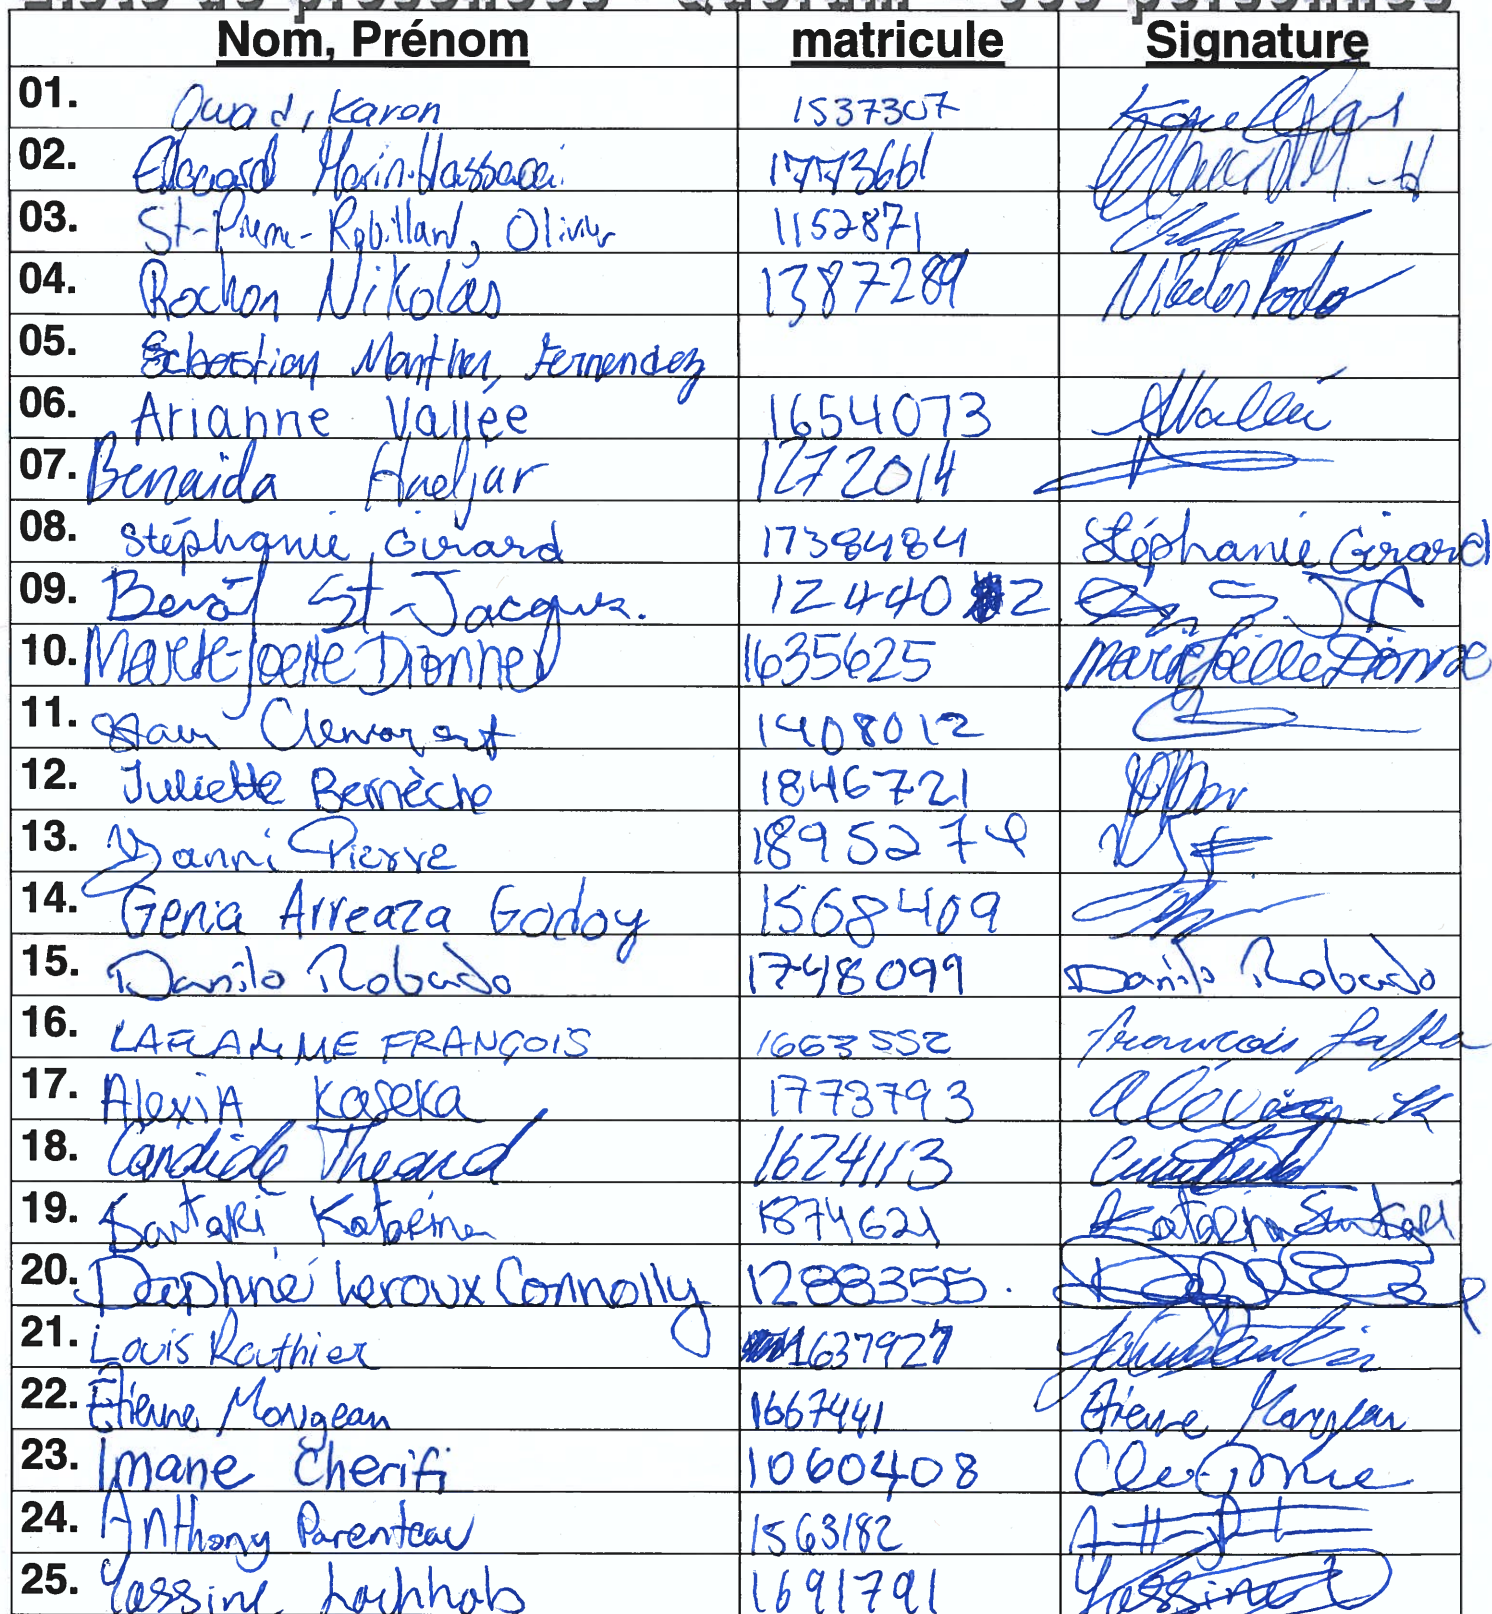 Nom, Prénom matricule Signature
01. Karon 1537307
02. Edouard Morin 1773661
03. St-Pierre-Robillard, Olivier 1152871
04. Rochon Nikolas 1387289
05. Sebastian Fernendez
06. Arianne Vallée 1654073 AVallée
07. Benaïda Hadjar 1272014
08. Stéphanie Girard 1738484 Stéphanie Girard
09. Benoît St-Jacques. 12440 2
10. Marie-Joelle Dionne 1635625 Marie Joëlle Dionne
11. 1408012
12. Juliette Bernèche 1846721
13. Yanni Pierre 1895274
14. Genia Arreaza Godoy 1568409
15. Danilo Robado 1748099 Danilo Robado
16. LAFLAMME FRANÇOIS 1663552 Francois
17. AlexiA Kaseka 1773793
18. Candide Theard 1624113
19. Santaki Katerina 1874621
20. Daphné Leroux Connolly 1288355.
21. Louis Rauthier 1637927
22. Étienne Mongeau 1667441 Étienne Mongeau
23. Imane Cherifi 10600408
24. Anthony Parenteau 1563182
25. Yassine 1691791 Yassine